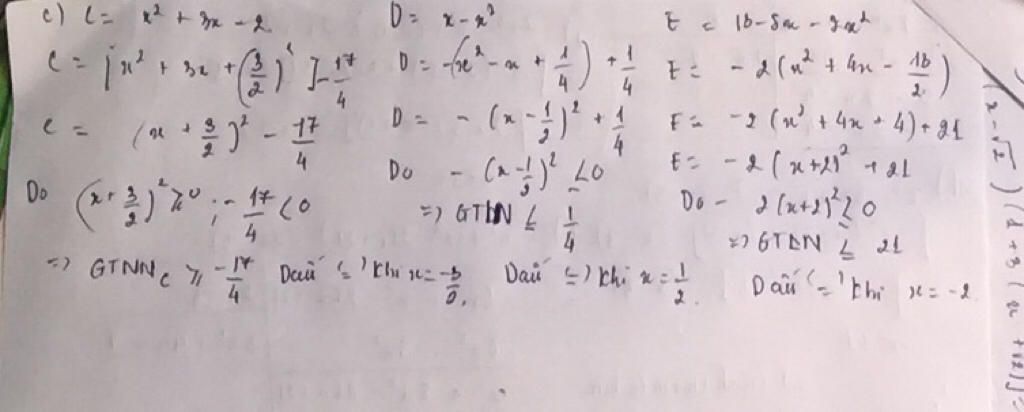 c) C = x² + 3x - 2
C = [x² + 3x + (3/2)²] - 17/4
C = (x + 3/2)² - 17/4
Do (x + 3/2)² ≥ 0 ; - 17/4 < 0
=> GTNN_C ≥ -17/4 Dấu "=" khi x = -3/2.
D = x - x²
D = -(x² - x + 1/4) + 1/4
D = - (x - 1/2)² + 1/4
Do - (x - 1/2)² ≤ 0
=> GTLN ≤ 1/4
Dấu "=" khi x = 1/2.
E = 13 - 8x - 2x²
E = - 2(x² + 4x - 13/2)
E = -2 (x² + 4x + 4) + 21
E = -2 (x+2)² + 21
Do - 2(x+2)² ≤ 0
=> GTLN ≤ 21
Dấu "=" khi x = -2